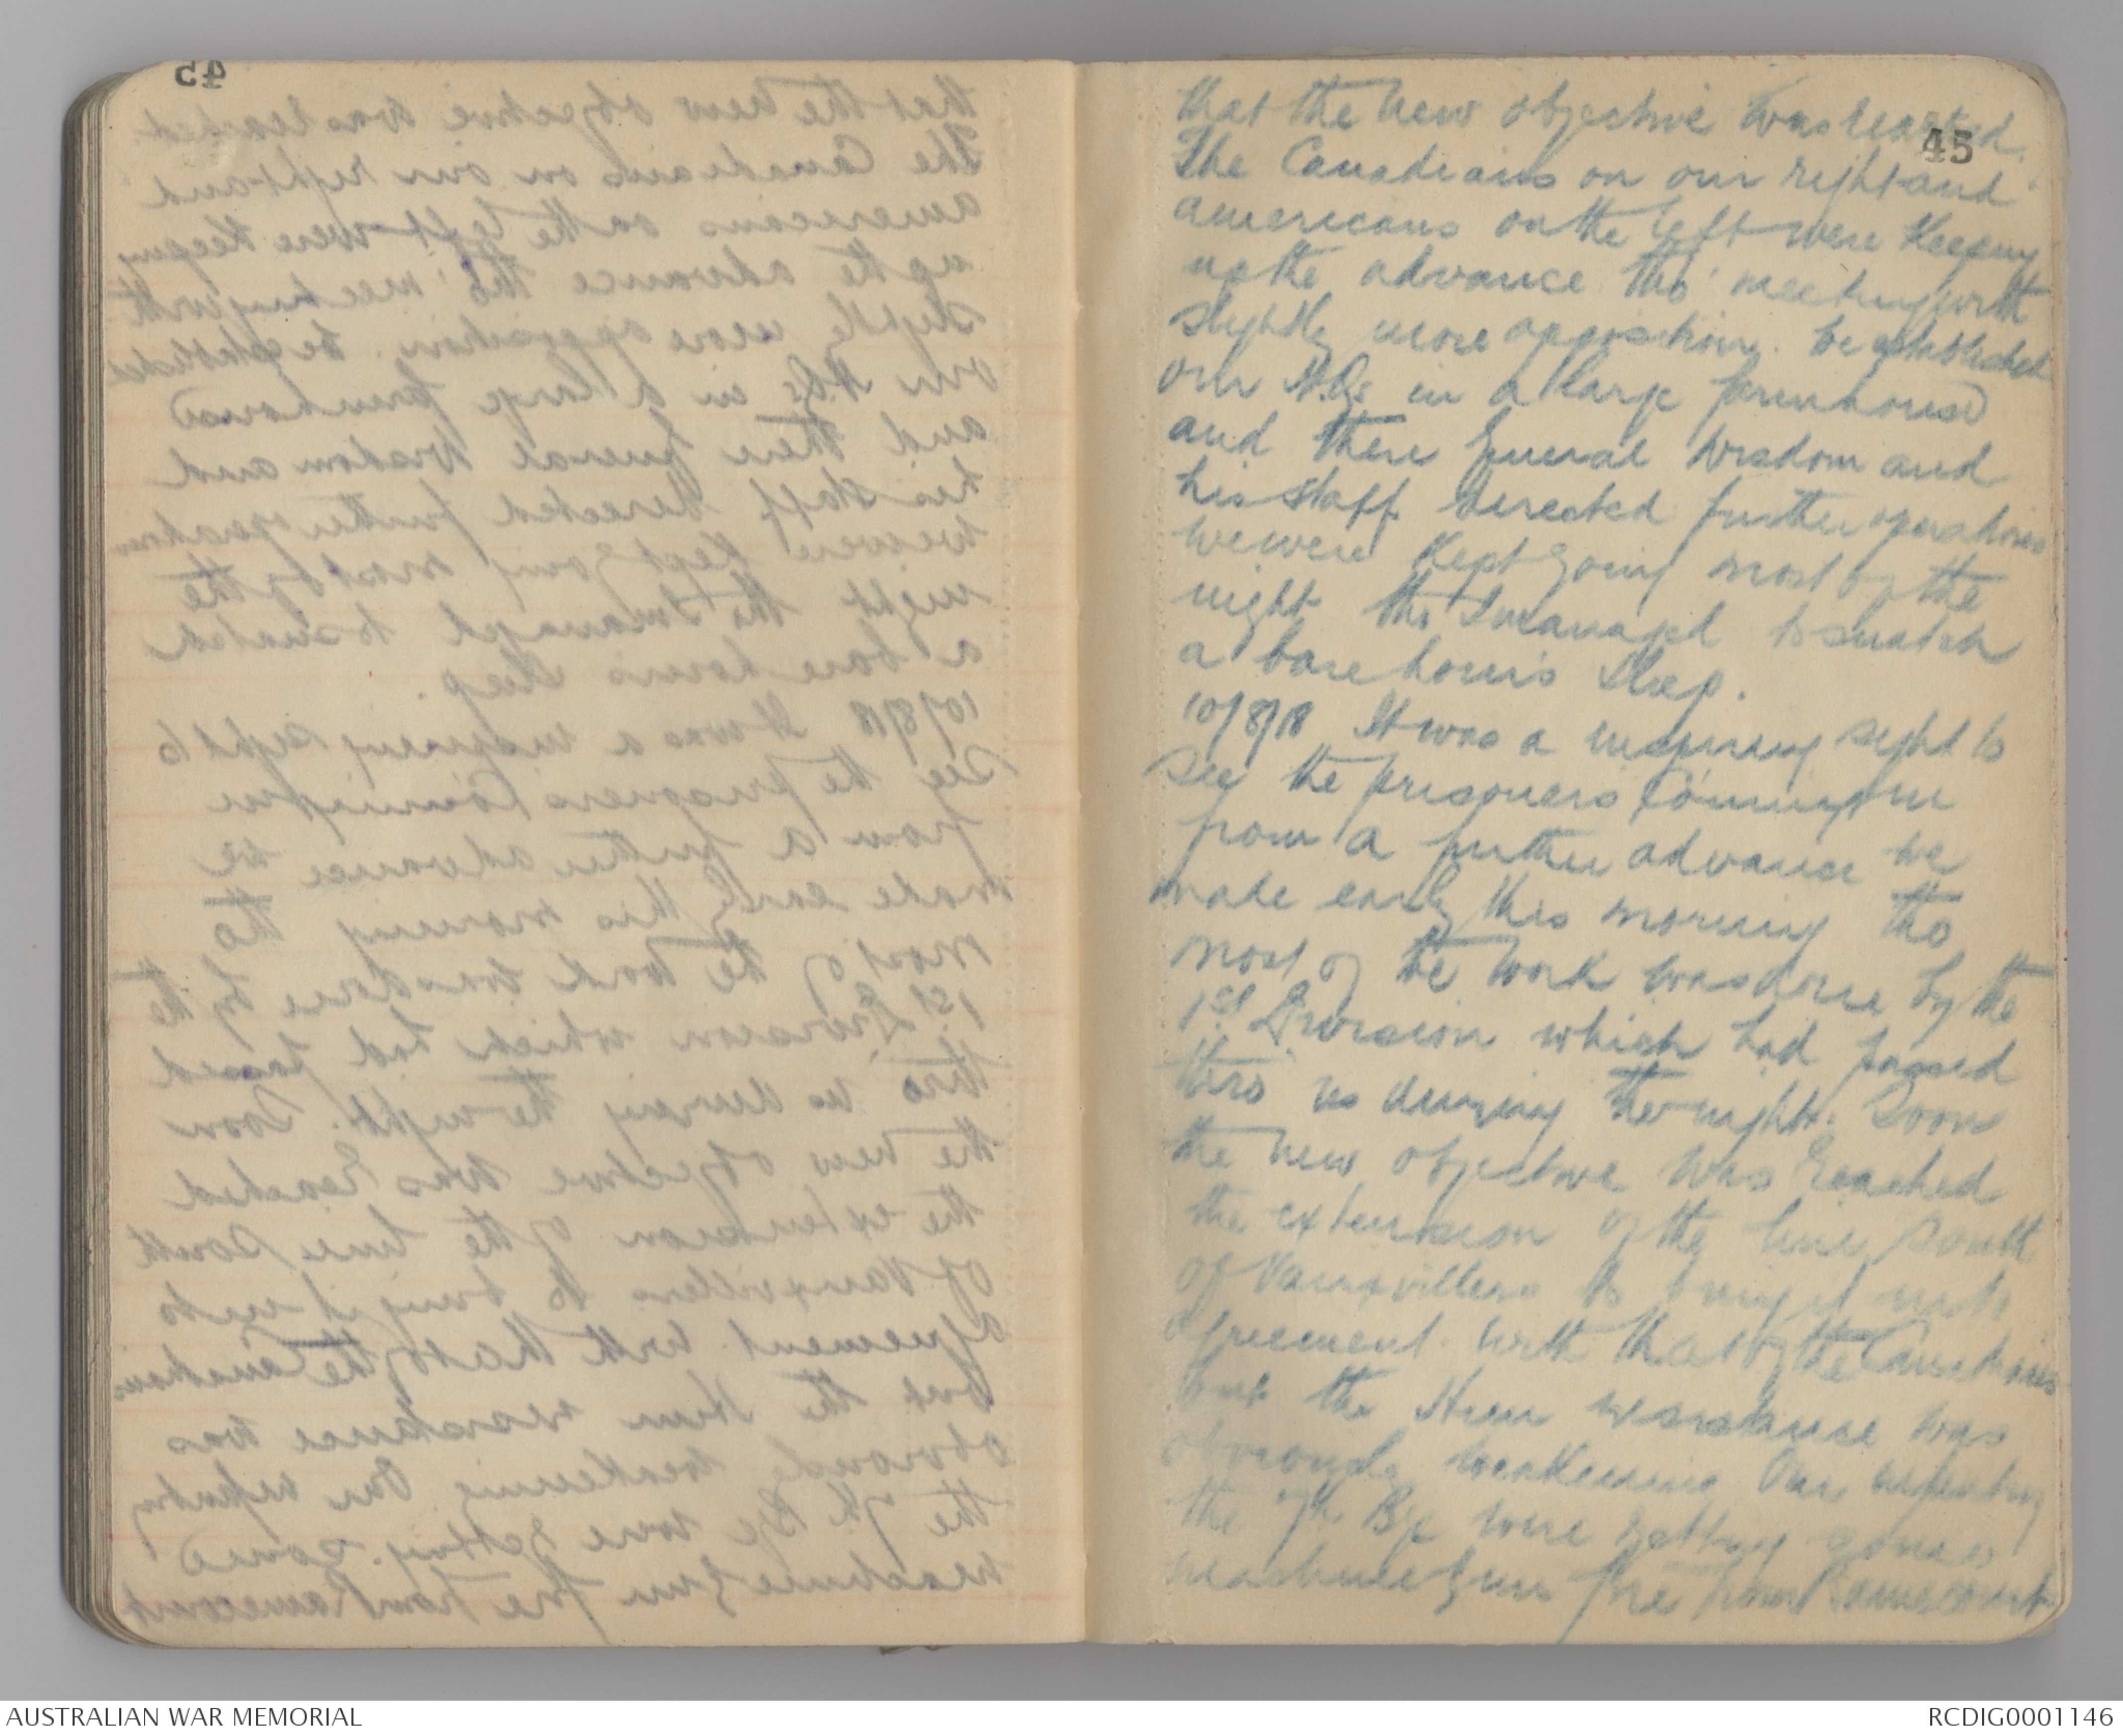 45
that the new objective was reached.
The Canadians on our right and
americans on the left were keeping
up the advance tho' meeting with
slightly more opposition. We established
our H.Qs in a large farmhouse
and there General Wisdom and
his staff directed further operations
we were kept going most of the
night tho I managed to snatch
a bare hour's sleep.
10/8/18 It was a inspiring sight to
see the prisoners coming in
from a further advance we
made early this morning tho
most of the work was done by the
1st Division which had passed
thro' us during the night. Soon
the new objective was reached
the extension of the line south
of Vauxvillers to bring it into
agreement with that of the Canadians
but the Hun resistance was
obviously weakening. Our infantry
the 7th Bge were getting some
machine gun fire from Ramecourt
AUSTRALIAN WAR MEMORIAL
RCDIG0001146